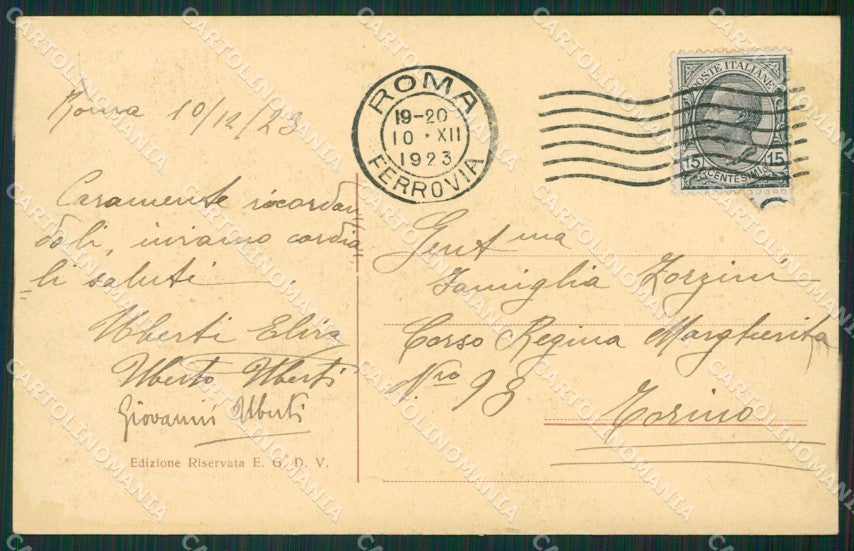 ROMA
19-20
10 · XII
1923
FERROVIA
POSTE ITALIANE
15 15
CENTESIMI
Roma 10/12/23
Caramente ricordan
doli, inviamo cordia
li saluti
Uberti Elisa
Uberto Uberti
Giovanni Uberti
Edizione Riservata E. G. D. V.
Gent ma
Famiglia Zorzini
Corso Regina Margherita
N.ro 93
Torino
CARTOLINOMANIA